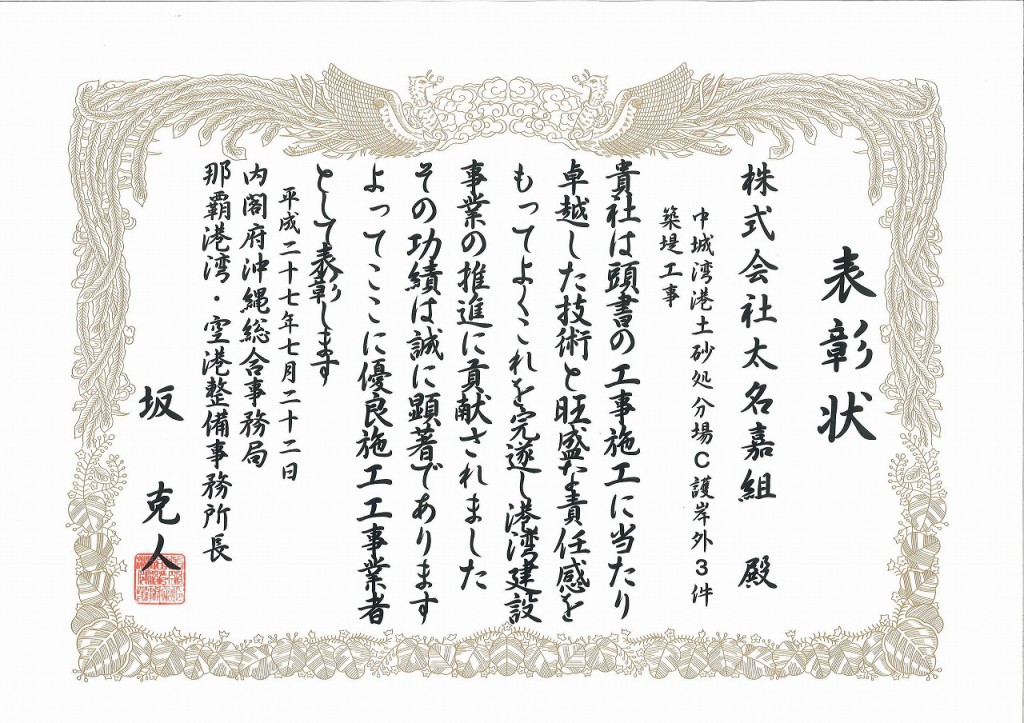 表彰状
株式会社太名嘉組 殿
中城湾港土砂処分場C護岸外3件
築堤工事
貴社は頭書の工事施工に当たり
卓越した技術と旺盛な責任感を
もってよくこれを完遂し港湾建設
事業の推進に貢献されました
その功績は誠に顕著であります
よってここに優良施工工事業者
として表彰します
平成二十七年七月二十二日
内閣府沖縄総合事務局
那覇港湾・空港整備事務所長
坂 克人